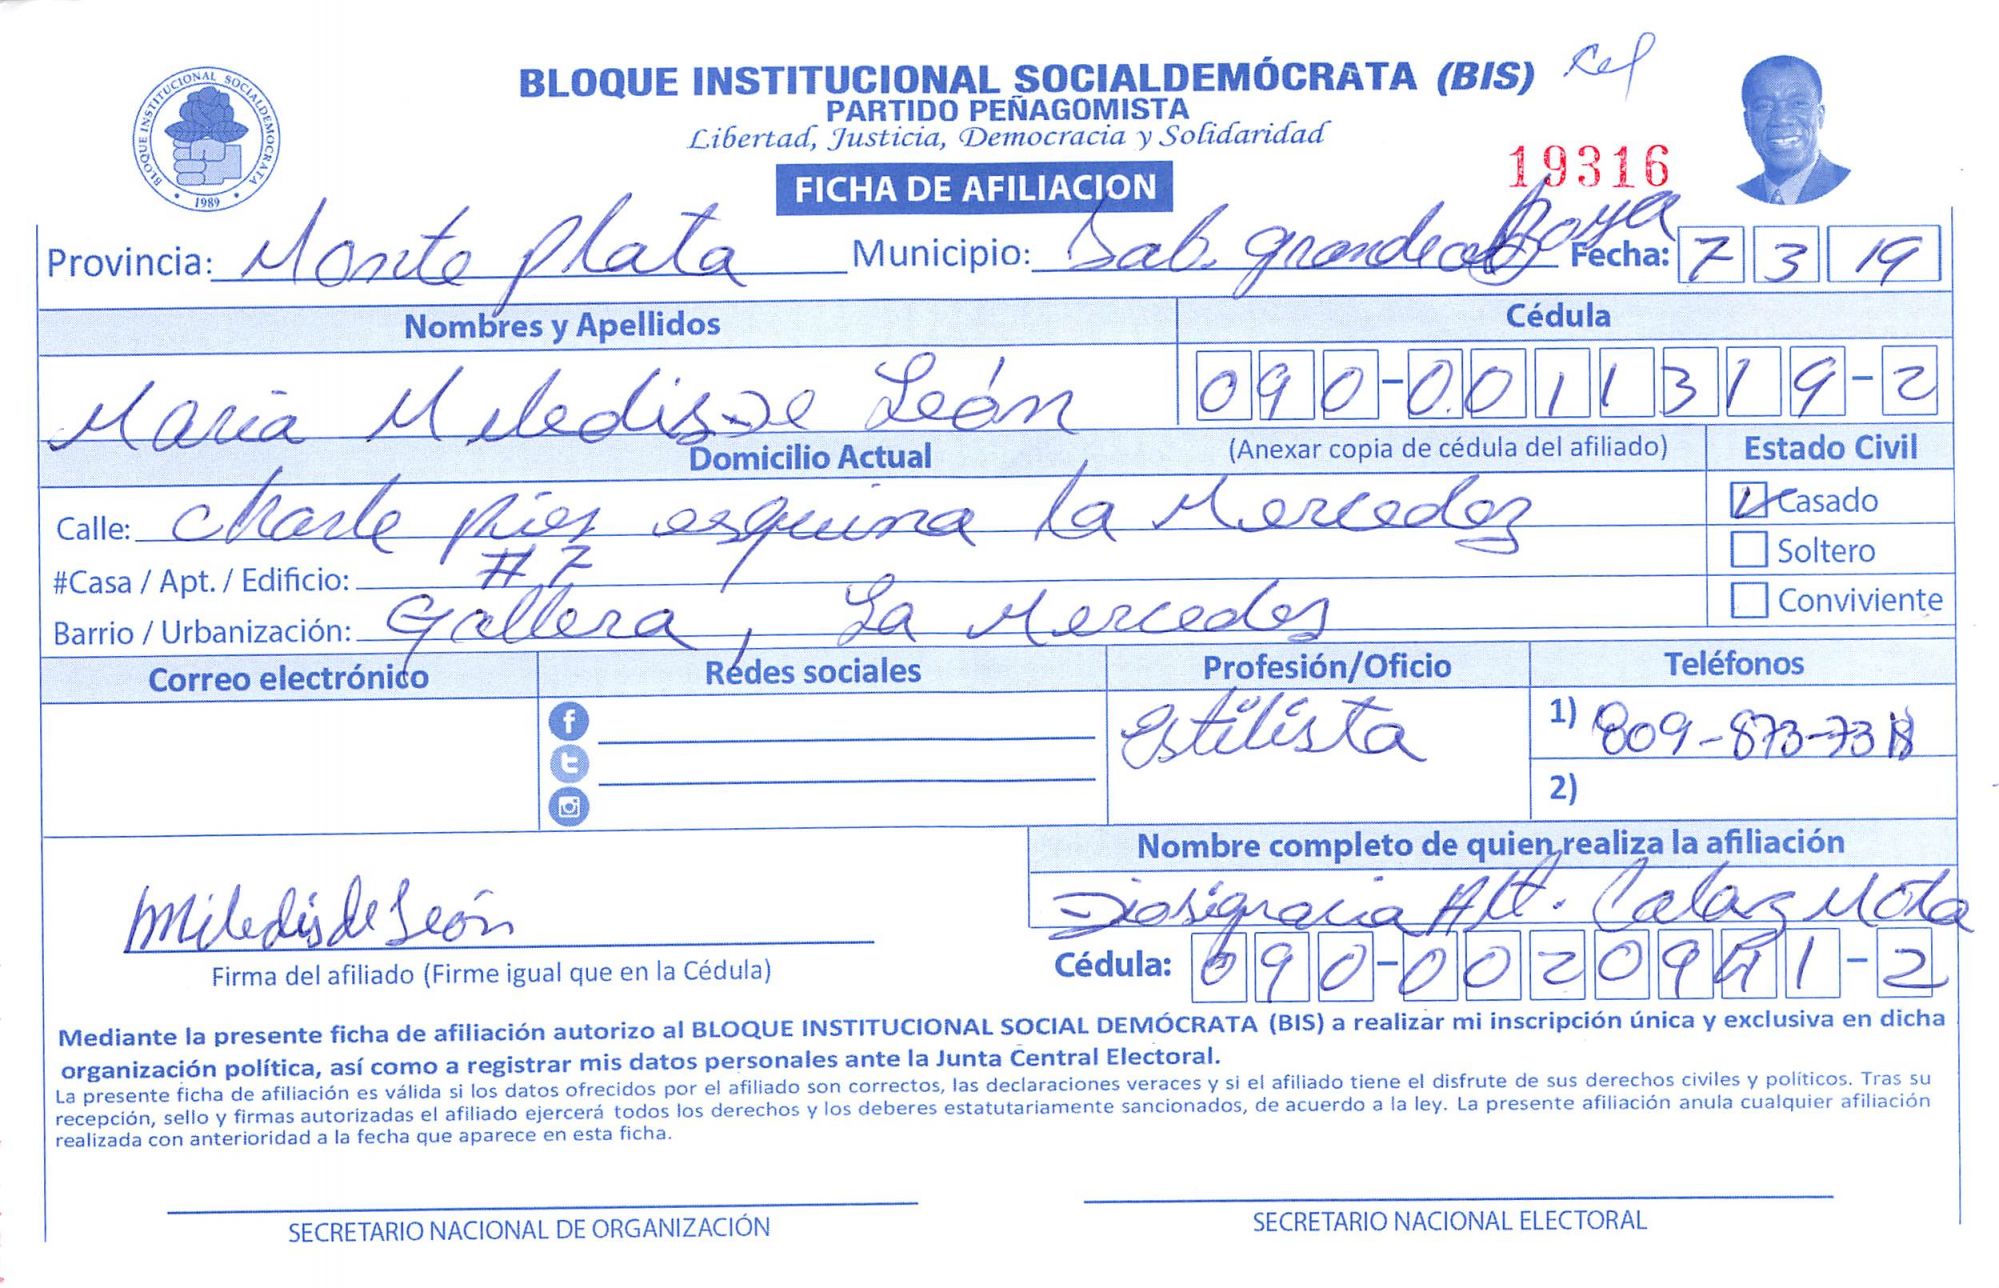 BLOQUE INSTITUCIONAL SOCIALDEMÓCRATA
1989
BLOQUE INSTITUCIONAL SOCIALDEMÓCRATA (BIS)
PARTIDO PEÑAGOMISTA
Libertad, Justicia, Democracia y Solidaridad
FICHA DE AFILIACION
19316
Provincia: Monte Plata Municipio: Sab. grande Boya Fecha: 7 3 19
Nombres y Apellidos Cédula
Maria Miledis De León 090-0011319-2
Domicilio Actual (Anexar copia de cédula del afiliado) Estado Civil
Calle: Charle pies esquina la Mercedez Casado
Soltero
#Casa / Apt. / Edificio: # 7
Conviviente
Barrio / Urbanización: Gallera, La Mercedes
Correo electrónico Redes sociales Profesión/Oficio Teléfonos
Estilista 1) 809-873-73
2)
Nombre completo de quien realiza la afiliación
Diosigracia Alt. Calaz Mota
Miledis de León
Firma del afiliado (Firme igual que en la Cédula)
Cédula: 090-0020941-2
Mediante la presente ficha de afiliación autorizo al BLOQUE INSTITUCIONAL SOCIAL DEMÓCRATA (BIS) a realizar mi inscripción única y exclusiva en dicha
organización política, así como a registrar mis datos personales ante la Junta Central Electoral.
La presente ficha de afiliación es válida si los datos ofrecidos por el afiliado son correctos, las declaraciones veraces y si el afiliado tiene el disfrute de sus derechos civiles y políticos. Tras su
recepción, sello y firmas autorizadas el afiliado ejercerá todos los derechos y los deberes estatutariamente sancionados, de acuerdo a la ley. La presente afiliación anula cualquier afiliación
realizada con anterioridad a la fecha que aparece en esta ficha.
SECRETARIO NACIONAL DE ORGANIZACIÓN SECRETARIO NACIONAL ELECTORAL